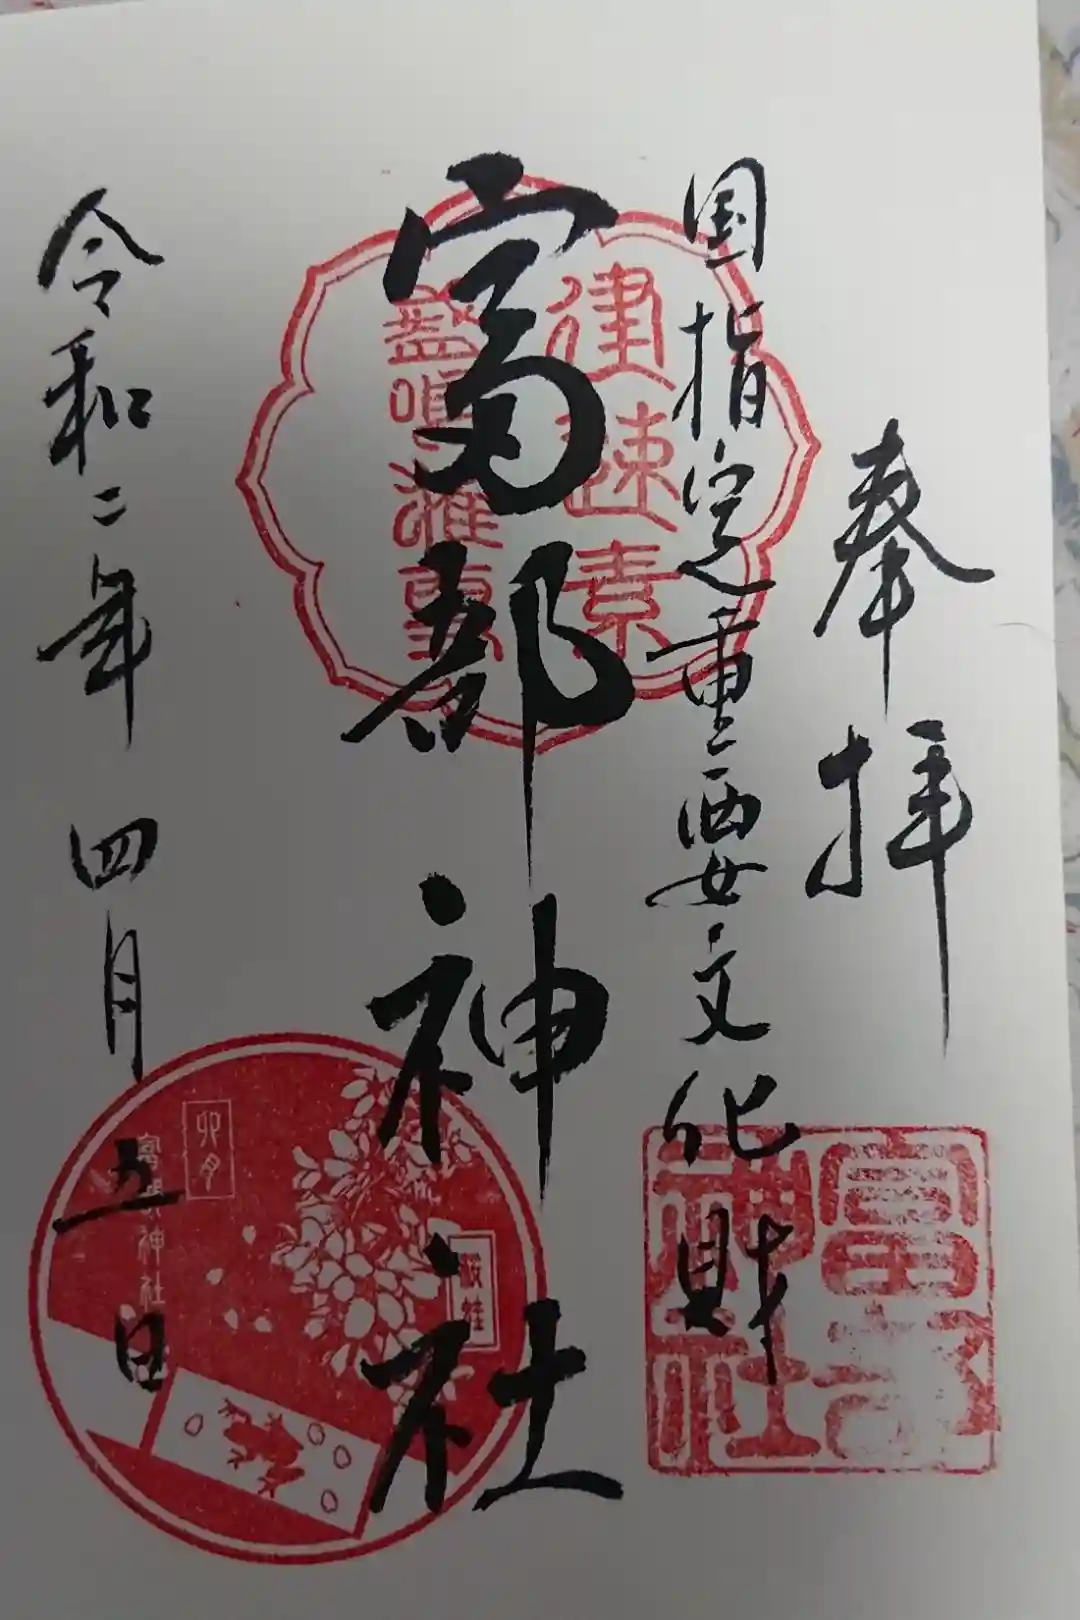 奉拝
国指定重要文化財
富部神社
建速素
盞嗚尊
富部神社
卯月
富部神社
令和二年 四月 五日